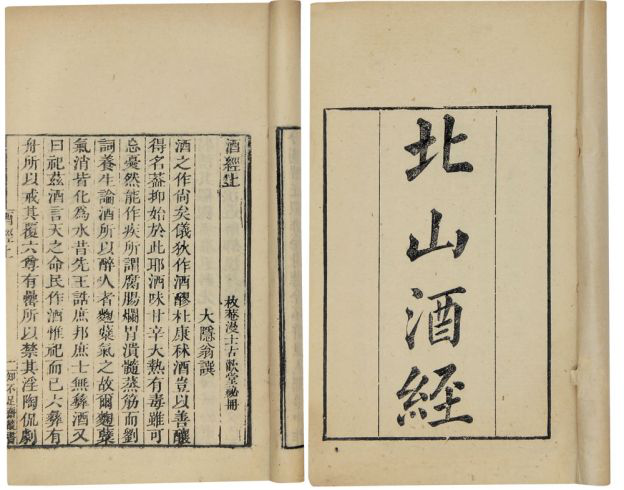 北山酒經
酒經上
枚菴漫士古歡堂祕冊
大隱翁譔
酒之作尚矣儀狄作酒醪杜康秫酒豈以善釀
得名葢抑始於此耶酒味甘辛大熱有毒雖可
忘憂然能作疾所謂腐腸爛胃潰髓蒸筋而劉
詞養生論酒所以醉人者麴糵氣之故爾麴糵
氣消皆化爲水昔先王誥庶邦庶士無彝酒又
曰祀茲酒言天之命民作酒惟祀而已六彝有
舟所以戒其覆六尊有罍所以禁其淫陶侃劇
知不足齋叢書